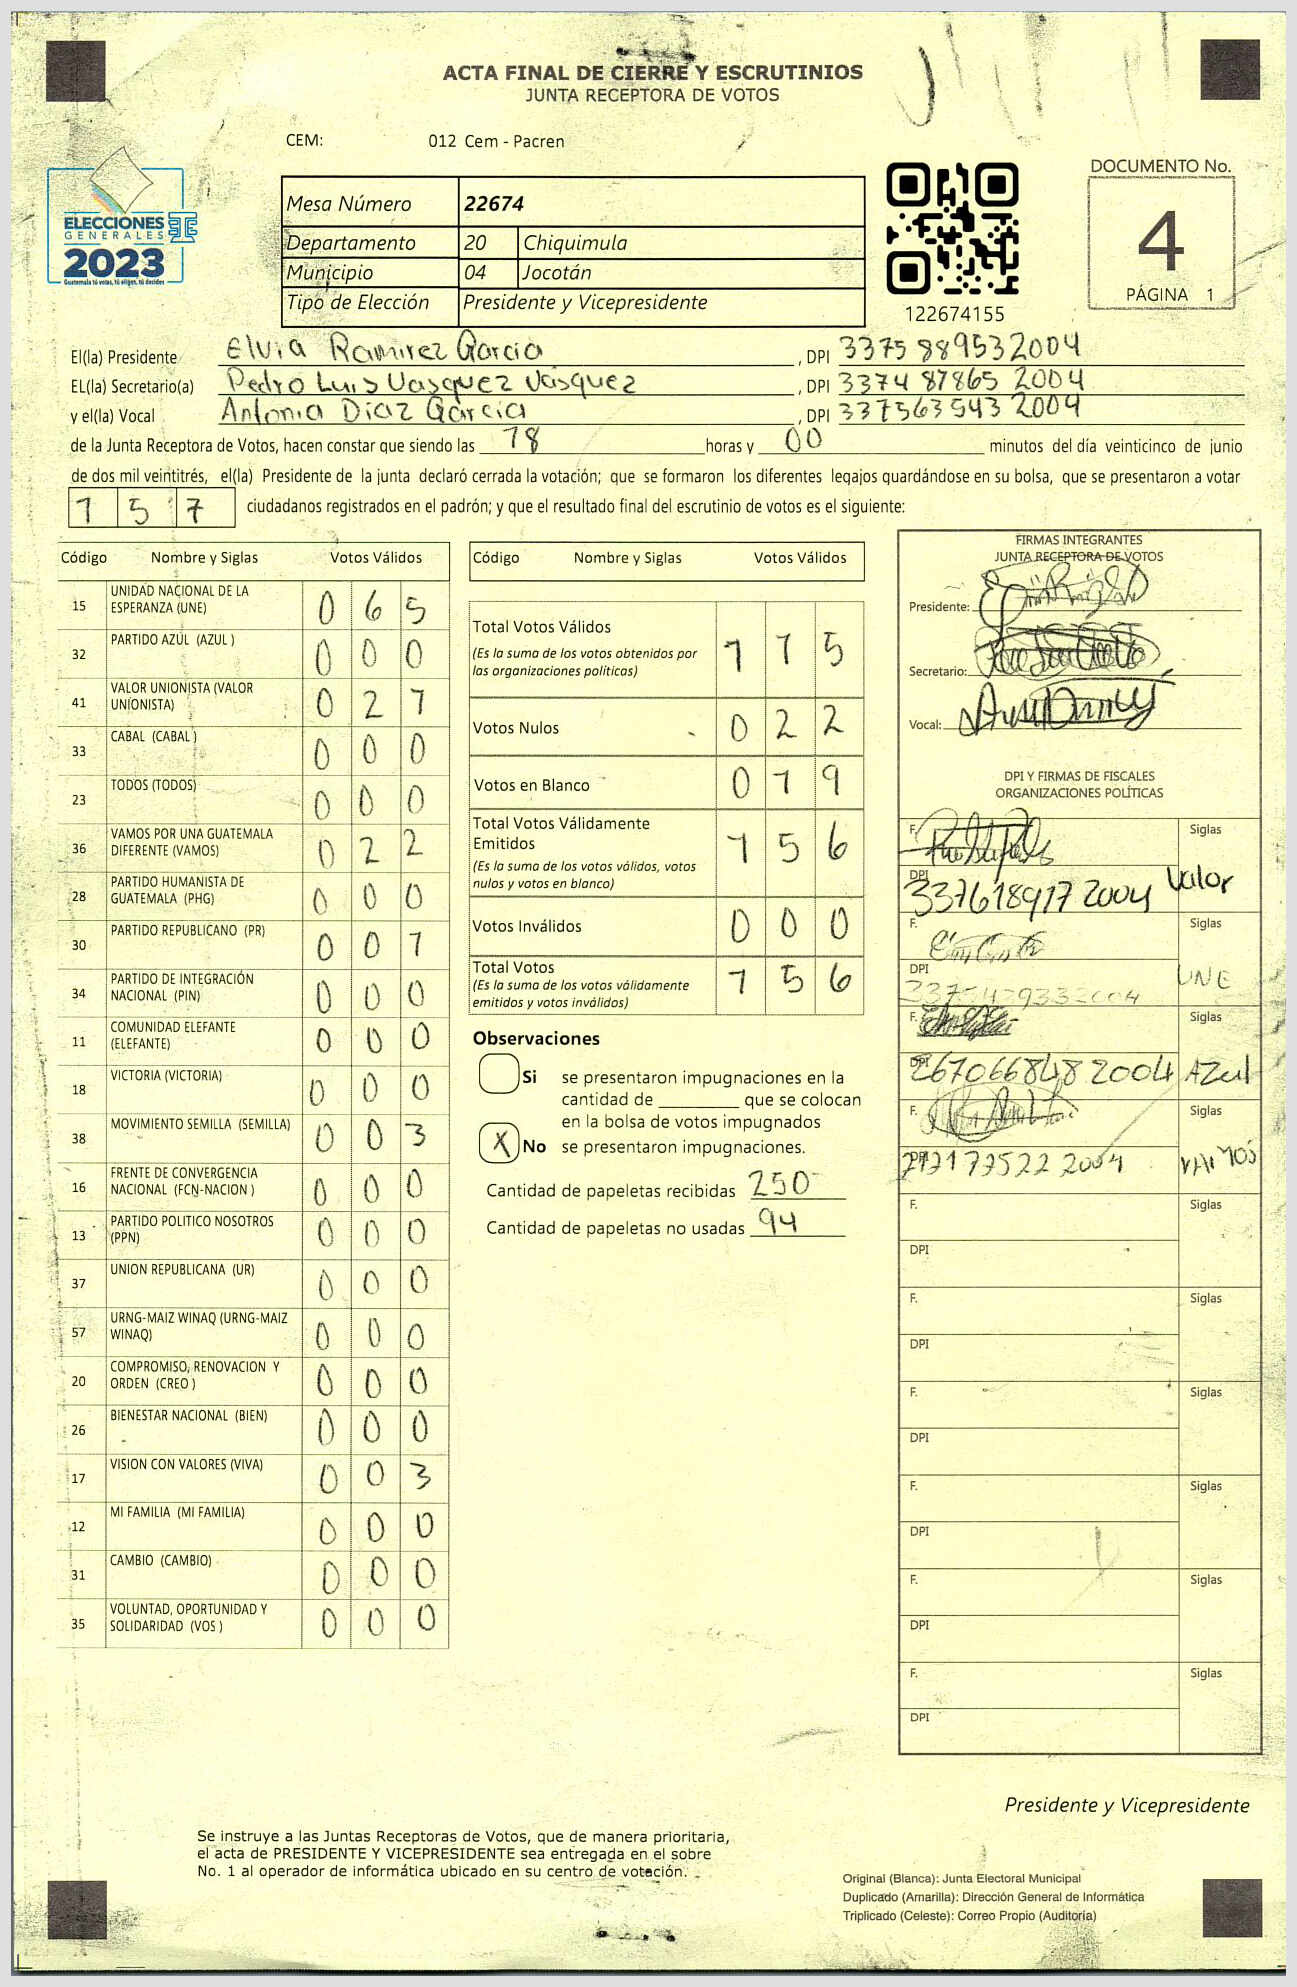 ACTA FINAL DE CIERRE Y ESCRUTINIOS
JUNTA RECEPTORA DE VOTOS
CEM: 012 Cem - Pacren
ELECCIONES
GENERALES
2023
Guatemala tú votas, tú eliges, tú decides
TE
Mesa Número 22674
Departamento 20 Chiquimula
Municipio 04 Jocotán
Tipo de Elección Presidente y Vicepresidente
122674155
DOCUMENTO No.
4
PÁGINA 1
El(la) Presidente Elvia Ramirez Garcia, DPI 3375 88953 2004
EL(la) Secretario(a) Pedro Luis Vasquez Vásquez, DPI 3374 87865 2004
y el(la) Vocal Antonia Diaz García, DPI 337563543 2004
de la Junta Receptora de Votos, hacen constar que siendo las 18 horas y 00 minutos del día veinticinco de junio
de dos mil veintitrés, el(la) Presidente de la junta declaró cerrada la votación; que se formaron los diferentes legajos guardándose en su bolsa, que se presentaron a votar
1 5 7 ciudadanos registrados en el padrón; y que el resultado final del escrutinio de votos es el siguiente:
Código Nombre y Siglas Votos Válidos
15 UNIDAD NACIONAL DE LA ESPERANZA (UNE) 0 6 5
32 PARTIDO AZUL (AZUL ) 0 0 0
41 VALOR UNIONISTA (VALOR UNIONISTA) 0 2 1
33 CABAL (CABAL ) 0 0 0
23 TODOS (TODOS) 0 0 0
36 VAMOS POR UNA GUATEMALA DIFERENTE (VAMOS) 0 2 2
28 PARTIDO HUMANISTA DE GUATEMALA (PHG) 0 0 0
30 PARTIDO REPUBLICANO (PR) 0 0 1
34 PARTIDO DE INTEGRACIÓN NACIONAL (PIN) 0 0 0
11 COMUNIDAD ELEFANTE (ELEFANTE) 0 0 0
18 VICTORIA (VICTORIA) 0 0 0
38 MOVIMIENTO SEMILLA (SEMILLA) 0 0 3
16 FRENTE DE CONVERGENCIA NACIONAL (FCN-NACION ) 0 0 0
13 PARTIDO POLITICO NOSOTROS (PPN) 0 0 0
37 UNION REPUBLICANA (UR) 0 0 0
57 URNG-MAIZ WINAQ (URNG-MAIZ WINAQ) 0 0 0
20 COMPROMISO, RENOVACION Y ORDEN (CREO ) 0 0 0
26 BIENESTAR NACIONAL (BIEN) 0 0 0
17 VISION CON VALORES (VIVA) 0 0 3
12 MI FAMILIA (MI FAMILIA) 0 0 0
31 CAMBIO (CAMBIO) 0 0 0
35 VOLUNTAD, OPORTUNIDAD Y SOLIDARIDAD (VOS ) 0 0 0
Código Nombre y Siglas Votos Válidos
Total Votos Válidos 1 1 5
(Es la suma de los votos obtenidos por
las organizaciones políticas)
Votos Nulos 0 2 2
Votos en Blanco 0 1 9
Total Votos Válidamente
Emitidos 1 5 6
(Es la suma de los votos válidos, votos
nulos y votos en blanco)
Votos Inválidos 0 0 0
Total Votos 1 5 6
(Es la suma de los votos válidamente
emitidos y votos inválidos)
Observaciones
Si se presentaron impugnaciones en la
cantidad de ________ que se colocan
en la bolsa de votos impugnados
X No se presentaron impugnaciones.
Cantidad de papeletas recibidas 250
Cantidad de papeletas no usadas 94
FIRMAS INTEGRANTES
JUNTA RECEPTORA DE VOTOS
Presidente:
Secretario:
Vocal:
DPI Y FIRMAS DE FISCALES
ORGANIZACIONES POLÍTICAS
F. Siglas
DPI 337618917 2004 Valor
F. Siglas
DPI UNE
F. Siglas
DPI 267066848 2004 AZul
F. Siglas
DPI VAMOS
F. Siglas
DPI
F. Siglas
DPI
F. Siglas
DPI
F. Siglas
DPI
F. Siglas
DPI
F. Siglas
DPI
Presidente y Vicepresidente
Se instruye a las Juntas Receptoras de Votos, que de manera prioritaria,
el acta de PRESIDENTE Y VICEPRESIDENTE sea entregada en el sobre
No. 1 al operador de informática ubicado en su centro de votación.
Original (Blanca): Junta Electoral Municipal
Duplicado (Amarilla): Dirección General de Informática
Triplicado (Celeste): Correo Propio (Auditoria)